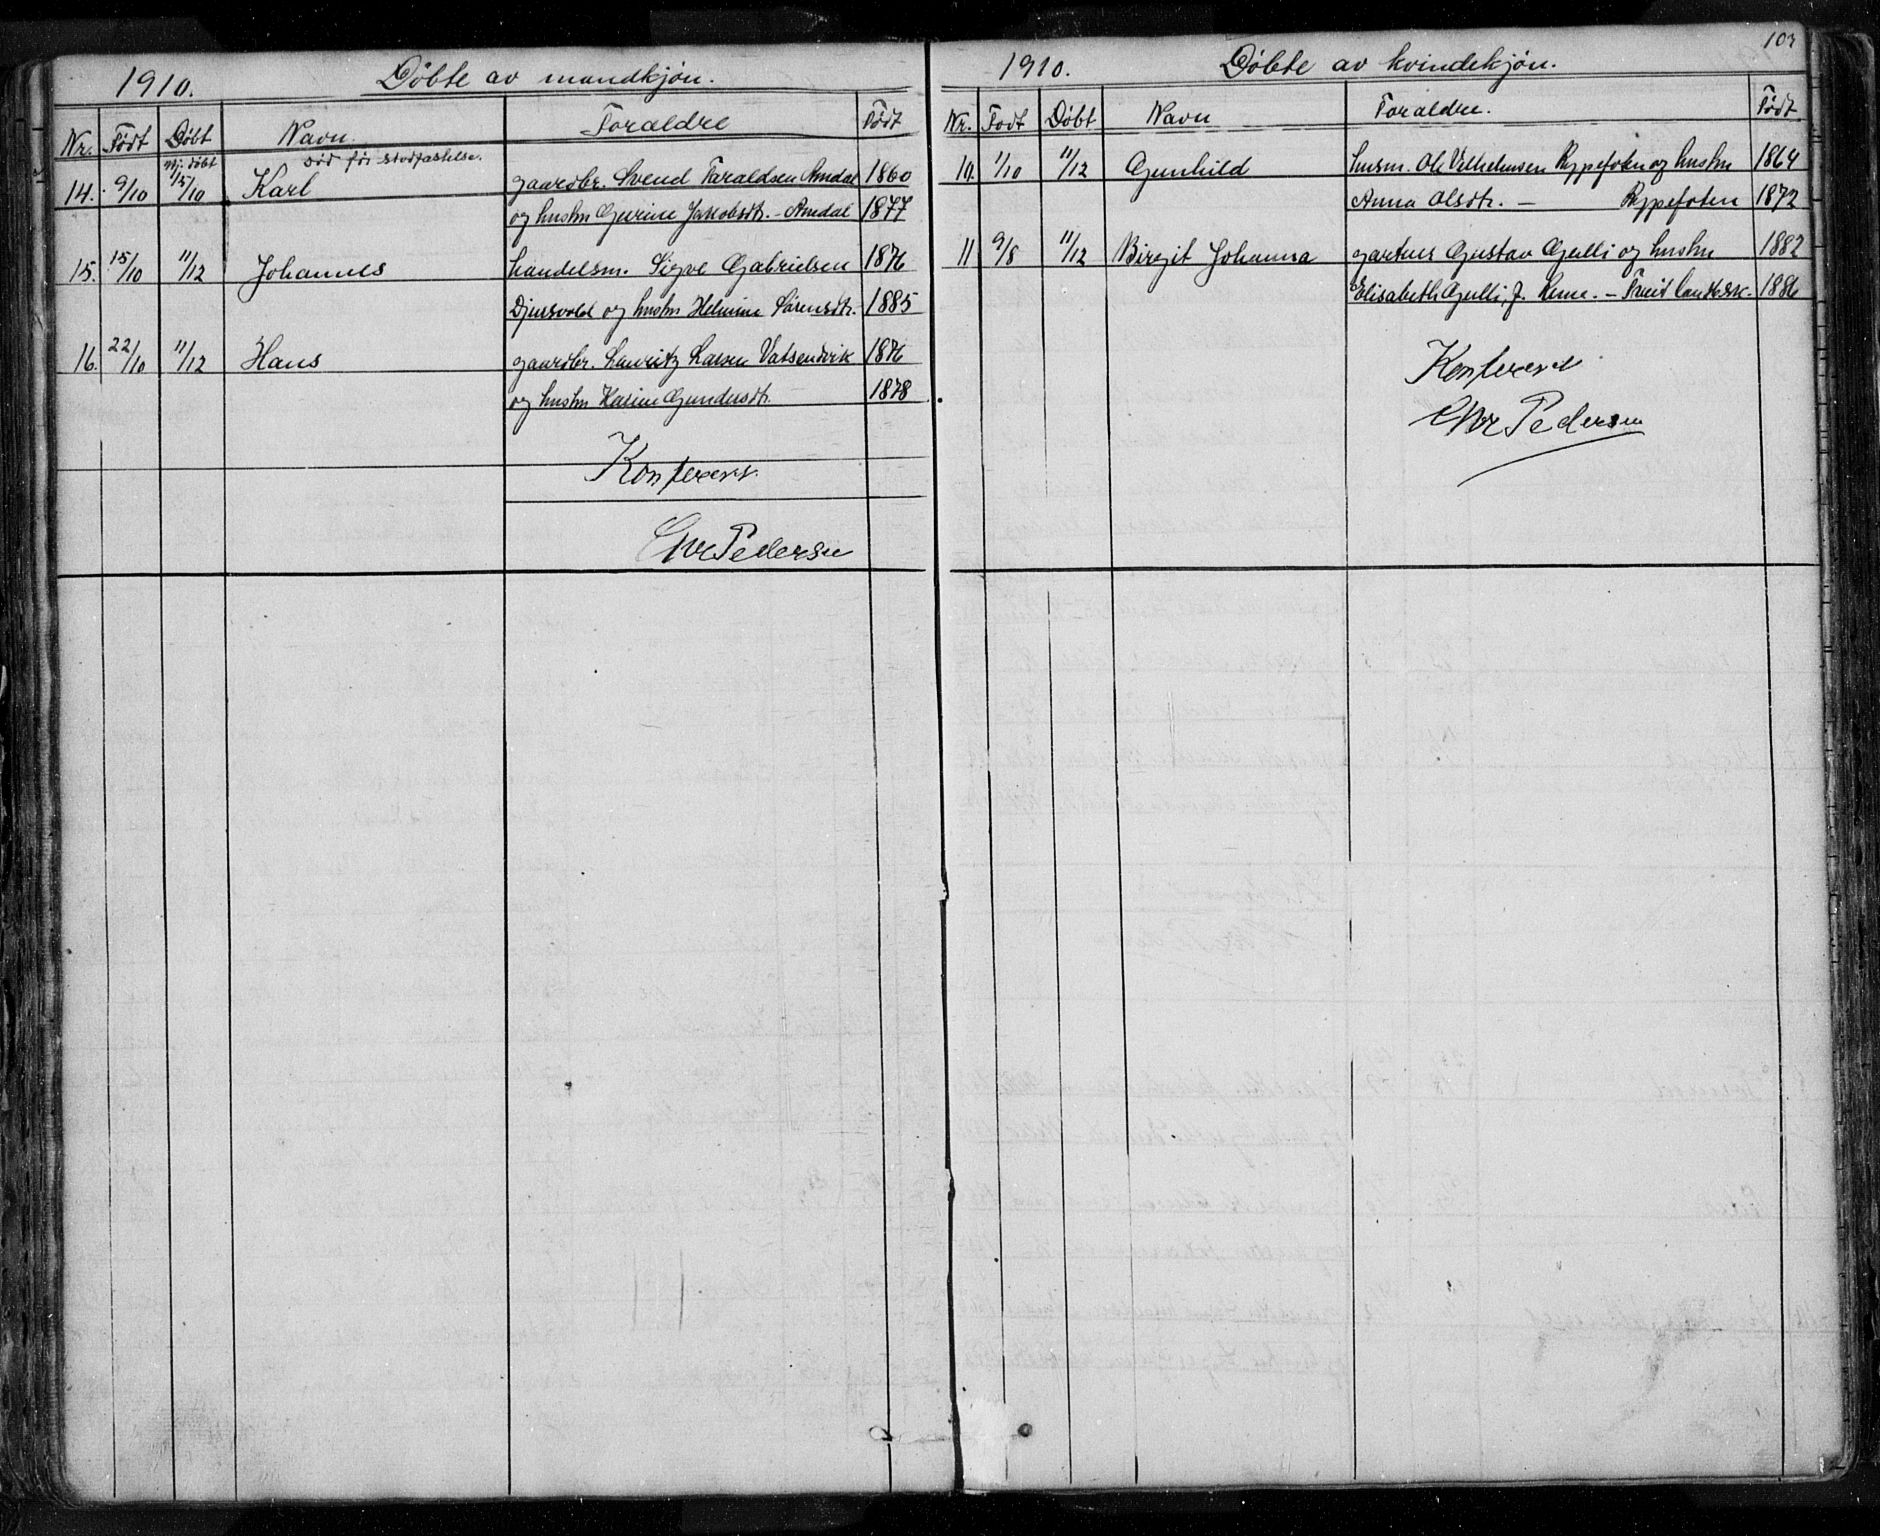 1910. Døbte av mandkjøn.
Nr. Født Døbt Navn. Foraldre Født
hj. døbt død før stadfæstelse.
14. 9/10 15/10 Karl gaardbr. Svend Taraldsen Amdal 1860
og hustru Gurine Jakobsdtr. - Amdal 1877
15. 15/10 11/12 Johannes handelsm. Sigve Gabrielsen 1876
Djursvold og hustru Helmine Sørensdtr. 1885
16. 22/10 11/12 Hans gaardbr. Lauritz Larsen Vatsendvik 1876
og hustru Karine Gundersdtr. 1878
Konfereret
Chr Pedersen
103
1910. Døbte av kvindekjøn.
Nr. Født Døbt Navn Foraldre. Født
10. 1/10 11/12 Gunhild husm. Ole Vilhelmsen Ryppefoten og hustru 1864
Anna Olsdtr. — Ryppefoten 1872
11 9/8 11/12 Birgit Johanna gartner Gustav Gulli og hustru 1882
Elisabeth Gulli, f. — landbsk. 1886
Konfereret
Chr Pedersen